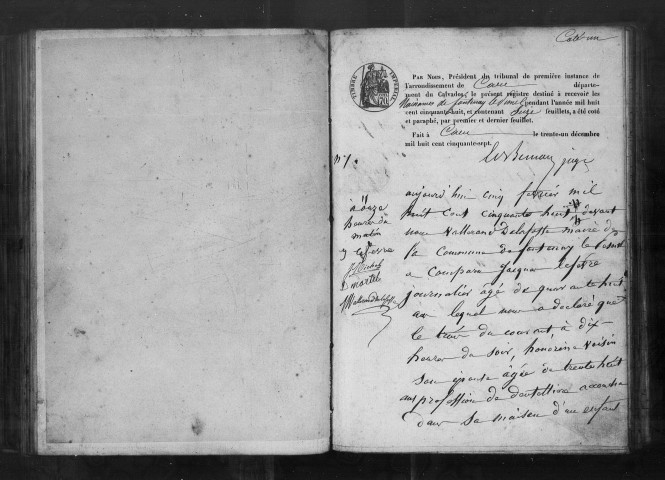 PAR NOUS, Président du tribunal de première instance de
l'arrondissement de Caen départe-
ment du Calvados, le présent registre destiné à recevoir les
Naissances de fontenay le Pesnel pendant l'année mil huit
cent cinquante-huit, et contenant Seize feuillets, a été coté
et paraphé, par premier et dernier feuillet.
Fait à Caen le trente-un décembre
mil huit cent cinquante-sept.
juge
N° 1.
à onze
heures du
matin
J lefevre
martel
aujourd'hui cinq fevrier mil
huit cent cinquante huit devant
nous Vallerand Delafosse maire de
la Commune de fontenay le Pesnel
a Comparu Jacques lefevre
journalier âgé de quarante huit
ans lequel nous a declaré que
le trois du courant à dix
heures du soir, honorine Voisin
son epouse âgée de trente huit
ans profession de dentellière accouchée
dans sa maison d'un enfant